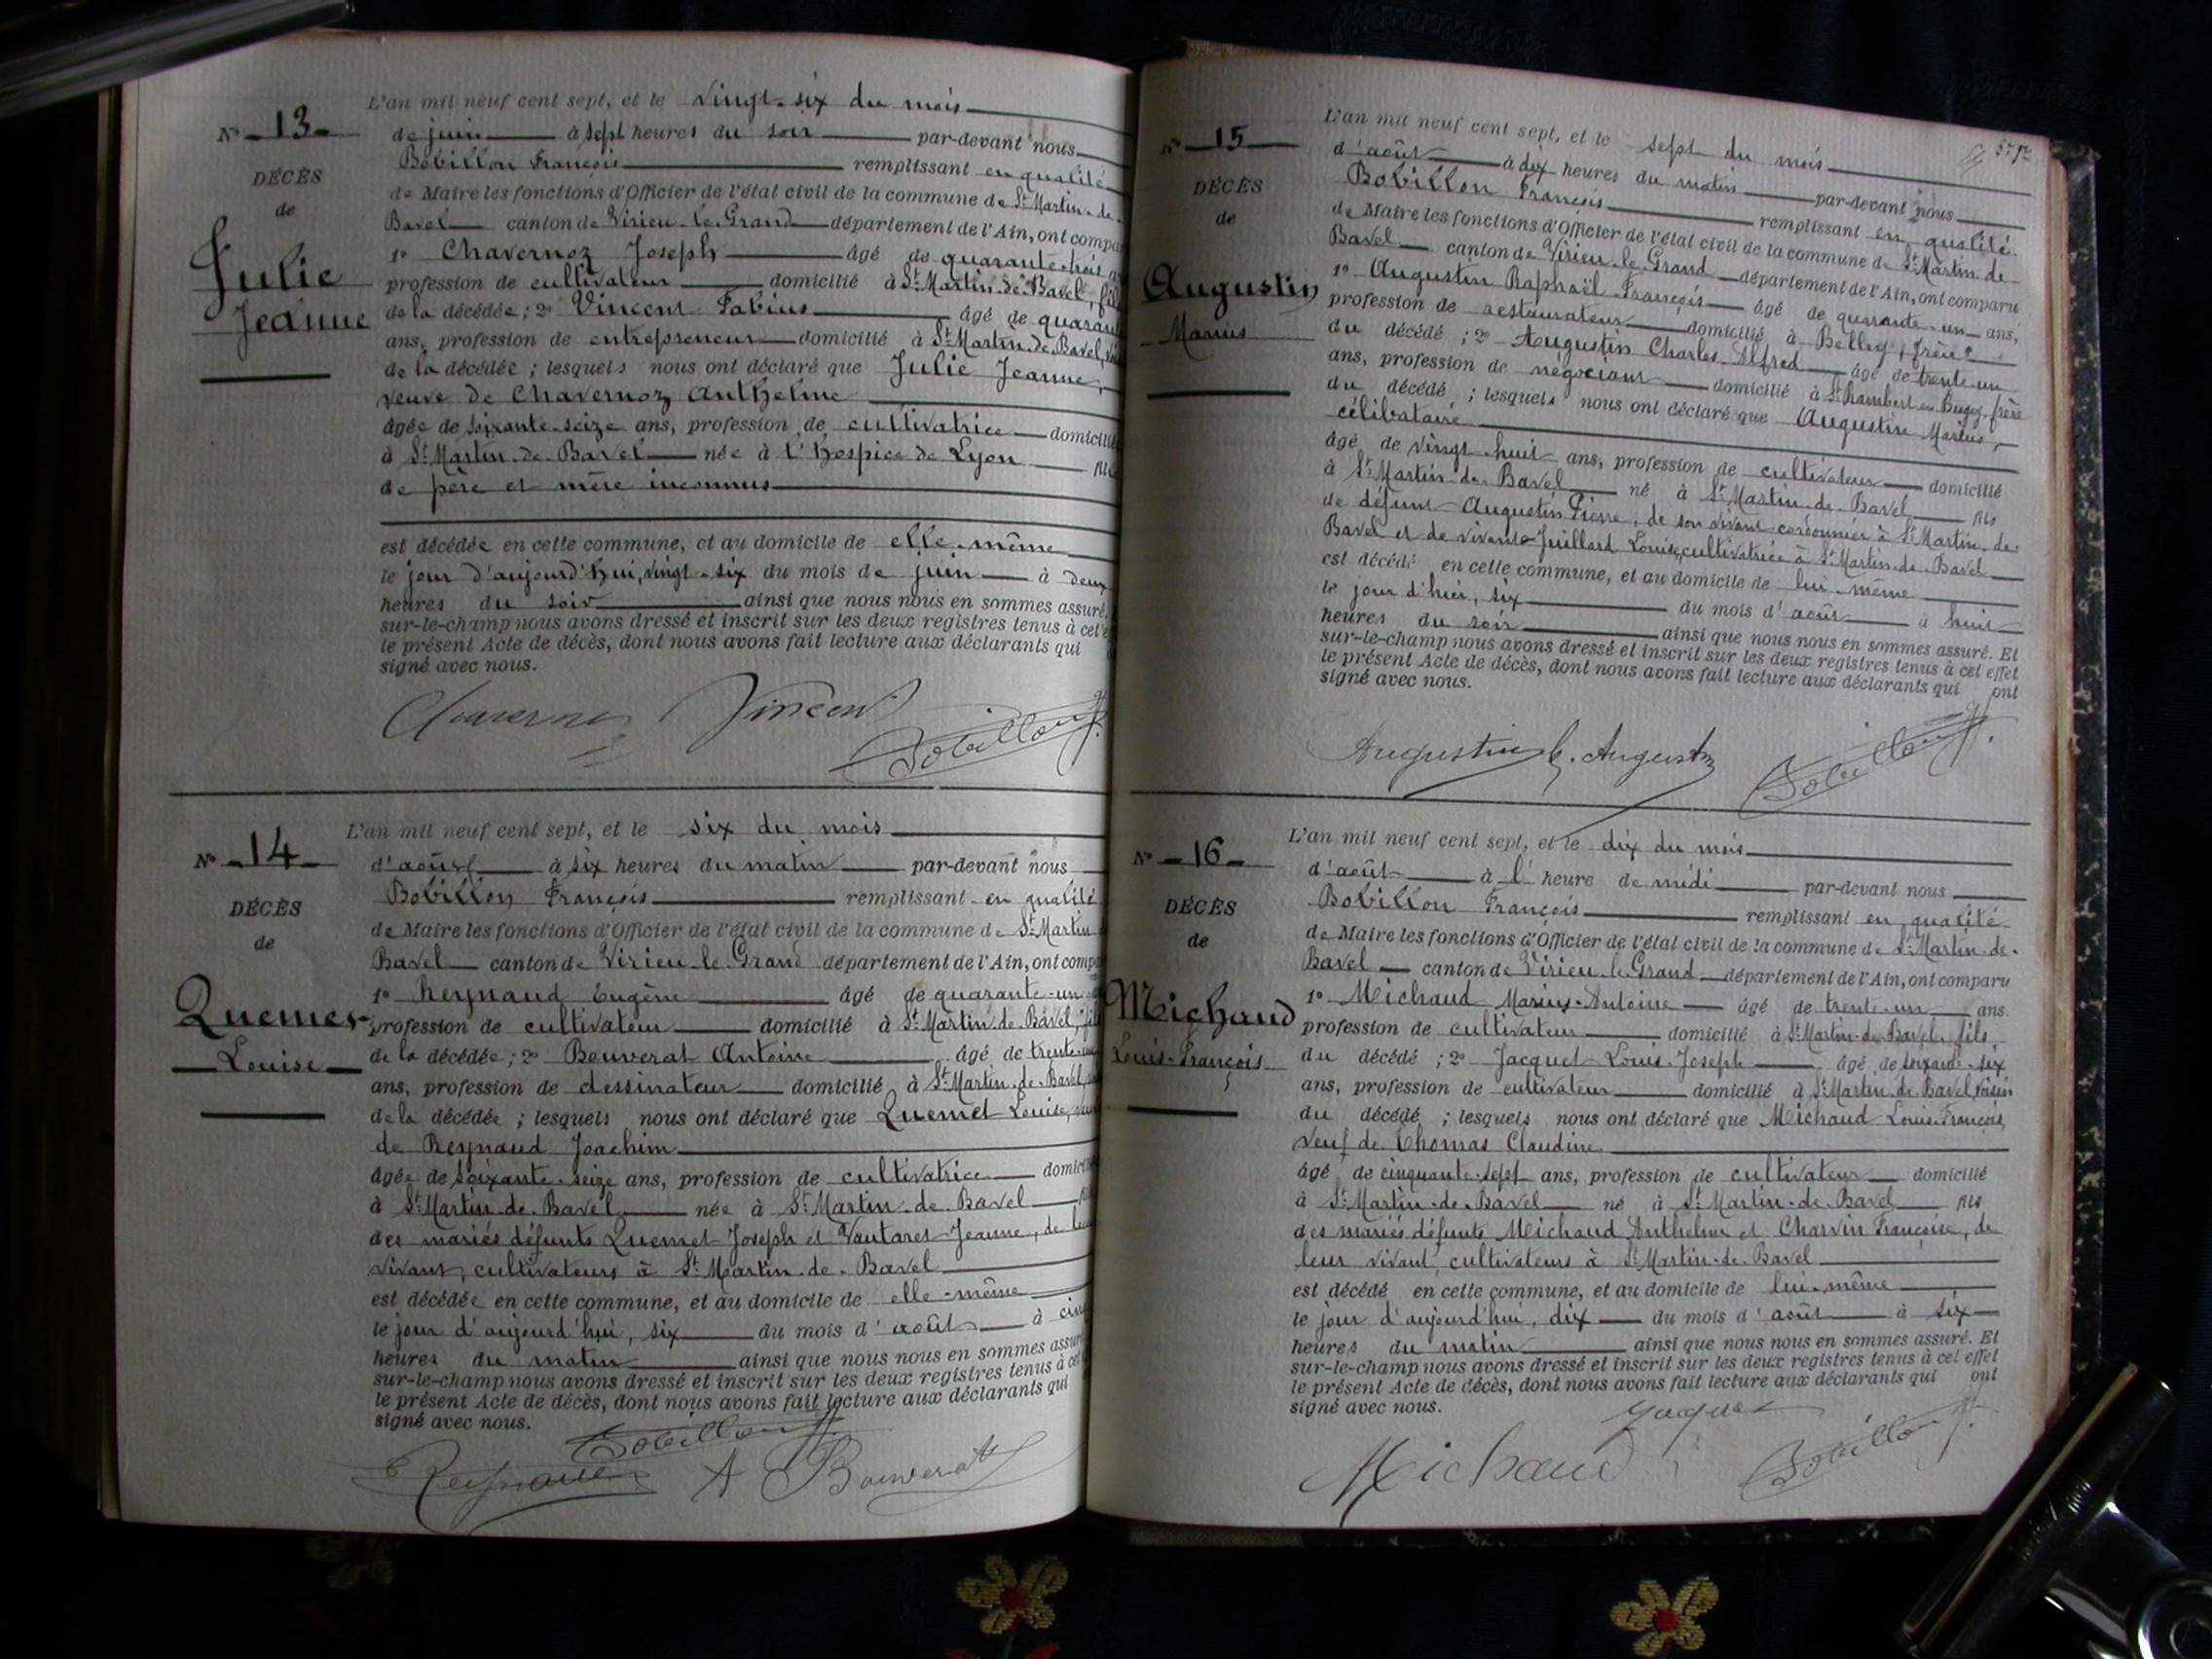 N° 13
DÉCÈS
de
Julie
Jeanne
L'an mil neuf cent sept, et le vingt-six du mois
de juin à sept heures du soir par-devant nous
Bobillon François remplissant en qualité
de Maire les fonctions d'Officier de l'état civil de la commune de St Martin-de-
Bavel canton de Virieu-le-Grand département de l'Ain, ont compa
1° Chavernoz Joseph âgé de quarante-trois
profession de cultivateur domicilié à St Martin-de-Bavel, fils
de la décédée ; 2° Vincent Fabius âgé de quarante
ans, profession de entrepreneur domicilié à St Martin-de-Bavel,
de la décédée ; lesquels nous ont déclaré que Julie Jeanne,
veuve de Chavernoz Anthelme
âgée de soixante-seize ans, profession de cultivatrice domicilié
à St Martin-de-Bavel née à l'hospice de Lyon fil
de père et mère inconnus
est décédée en cette commune, et au domicile de elle-même
le jour d'aujourd'hui, vingt-six du mois de juin à deux
heures du soir ainsi que nous nous en sommes assuré.
sur-le-champ nous avons dressé et inscrit sur les deux registres tenus à cet e
le présent Acte de décès, dont nous avons fait lecture aux déclarants qui
signé avec nous.
Chavernoz Vincent Bobillon f.
N° 14
DÉCÈS
de
Quemet
Louise
L'an mil neuf cent sept, et le six du mois
d'août à six heures du matin par-devant nous
Bobillon François remplissant en qualité
de Maire les fonctions d'Officier de l'état civil de la commune de St Martin-
Bavel canton de Virieu-le-Grand département de l'Ain, ont comp
1° Reynaud Eugène âgé de quarante-un
profession de cultivateur domicilié à St Martin-de-Bavel, fi
de la décédée ; 2° Bouverat Antoine âgé de trente
ans, profession de dessinateur domicilié à St Martin-de-Bavel,
de la décédée ; lesquels nous ont déclaré que Quemet Louise,
de Reynaud Joachim
âgée de soixante-seize ans, profession de cultivatrice domicil
à St Martin-de-Bavel née à St Martin-de-Bavel
des mariés défunts Quemet Joseph et Vautaret Jeanne, de leu
vivant, cultivateurs à St Martin-de-Bavel
est décédée en cette commune, et au domicile de elle-même
le jour d'aujourd'hui, six du mois d'août à cinq
heures du matin ainsi que nous nous en sommes assuré
sur-le-champ nous avons dressé et inscrit sur les deux registres tenus à cet
le présent Acte de décès, dont nous avons fait lecture aux déclarants qui
signé avec nous.
Bobillon f.
E Reynaud A Bouverat
N° 15
DÉCÈS
de
Augustin
Marius
L'an mil neuf cent sept, et le sept du mois
d'août à dix heures du matin par-devant nous
Bobillon François remplissant en qualité
de Maire les fonctions d'Officier de l'état civil de la commune de St Martin-de-
Bavel canton de Virieu-le-Grand département de l'Ain, ont comparu
1° Augustin Raphaël-François âgé de quarante-un ans,
profession de restaurateur domicilié à Belley, frère
du décédé ; 2° Augustin Charles-Alfred âgé de trente-un
ans, profession de négociant domicilié à St Rambert-en-Bugey, frère
du décédé ; lesquels nous ont déclaré que Augustin Marius,
célibataire
âgé de vingt-huit ans, profession de cultivateur domicilié
à St Martin-de-Bavel né à St Martin-de-Bavel fils
de défunt Augustin Pierre, de son vivant cordonnier à St Martin-de-
Bavel et de vivante Juillard Louise, cultivatrice à St Martin-de-Bavel
est décédé en cette commune, et au domicile de lui-même
le jour d'hier, six du mois d'août à huit
heures du soir ainsi que nous nous en sommes assuré. Et
sur-le-champ nous avons dressé et inscrit sur les deux registres tenus à cet effet
le présent Acte de décès, dont nous avons fait lecture aux déclarants qui ont
signé avec nous.
Augustin C. Augustin Bobillon f.
N° 16
DÉCÈS
de
Michaud
Louis-François
L'an mil neuf cent sept, et le dix du mois
d'août à l' heure de midi par-devant nous
Bobillon François remplissant en qualité
de Maire les fonctions d'Officier de l'état civil de la commune de St Martin-de-
Bavel canton de Virieu-le-Grand département de l'Ain, ont comparu
1° Michaud Marius-Antoine âgé de trente-un ans.
profession de cultivateur domicilié à St Martin-de-Bavel, fils
du décédé ; 2° Jacquet Louis-Joseph âgé de soixante-six
ans, profession de cultivateur domicilié à St Martin-de-Bavel, voisin
du décédé ; lesquels nous ont déclaré que Michaud Louis-François,
veuf de Thomas Claudine
âgé de cinquante-sept ans, profession de cultivateur domicilié
à St Martin-de-Bavel né à St Martin-de-Bavel fils
des mariés défunts Michaud Anthelme et Charvin Françoise, de
leur vivant, cultivateurs à St Martin-de-Bavel
est décédé en cette commune, et au domicile de lui-même
le jour d'aujourd'hui, dix du mois d'août à six
heures du matin ainsi que nous nous en sommes assuré. Et
sur-le-champ nous avons dressé et inscrit sur les deux registres tenus à cet effet
le présent Acte de décès, dont nous avons fait lecture aux déclarants qui ont
signé avec nous.
Jaquet
Michaud Bobillon f.